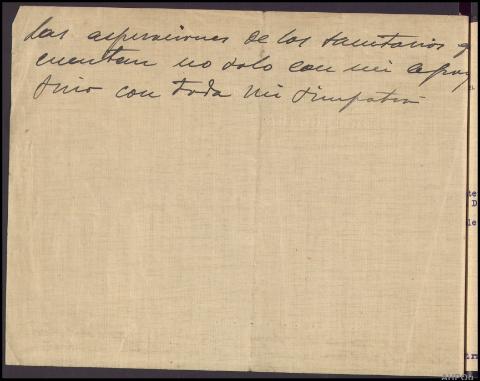 Las aspiraciones de los sanitarios
cuentan no solo con mi apoy
sino con toda mi simpatia